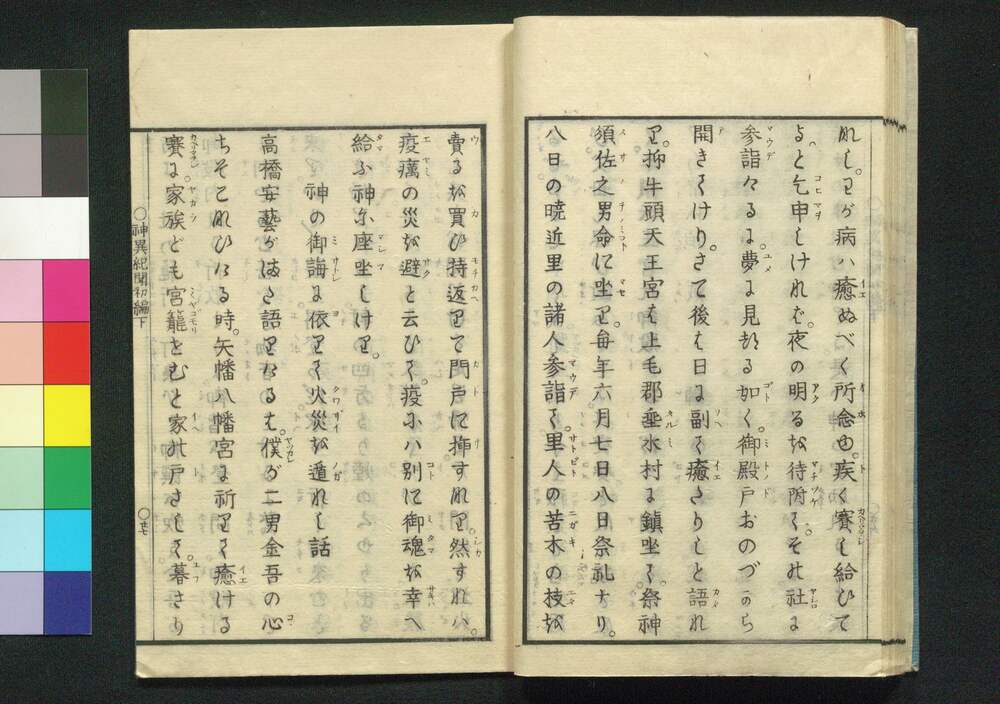 れし。里が病ハ癒ぬべく所念由。疾く賽し給ひて
よと乞申しけれど。夜の明るを待附て。その社に
参詣けるに。夢に見たる如く。御殿戸おのづから
開きてけり。さて後は日に副て癒さりしと語れ
り。抑牛頭天王宮は上毛郡垂水村に鎮坐て。祭神
須佐之男命に坐り。毎年六月七日八日祭礼なり。
八日の暁近里の諸人参詣て。里人の苦木の枝を
賣るを買ひ持返りて門戸に挿すれり。然すれハ。
疫癘の災を避と云ひて。疫にハ別に御魂を幸へ
給ふ神に座坐しけり。
神の御誨に依りて火災を遁れし話
高橋安藝がはる語りたるは。僕が二男金吾の心
ちそこれひける時。矢幡八幡宮に祈りて癒ける
賽に。家族ども宮籠をむと家の戸さして。暮さり
○神異紀聞初編下